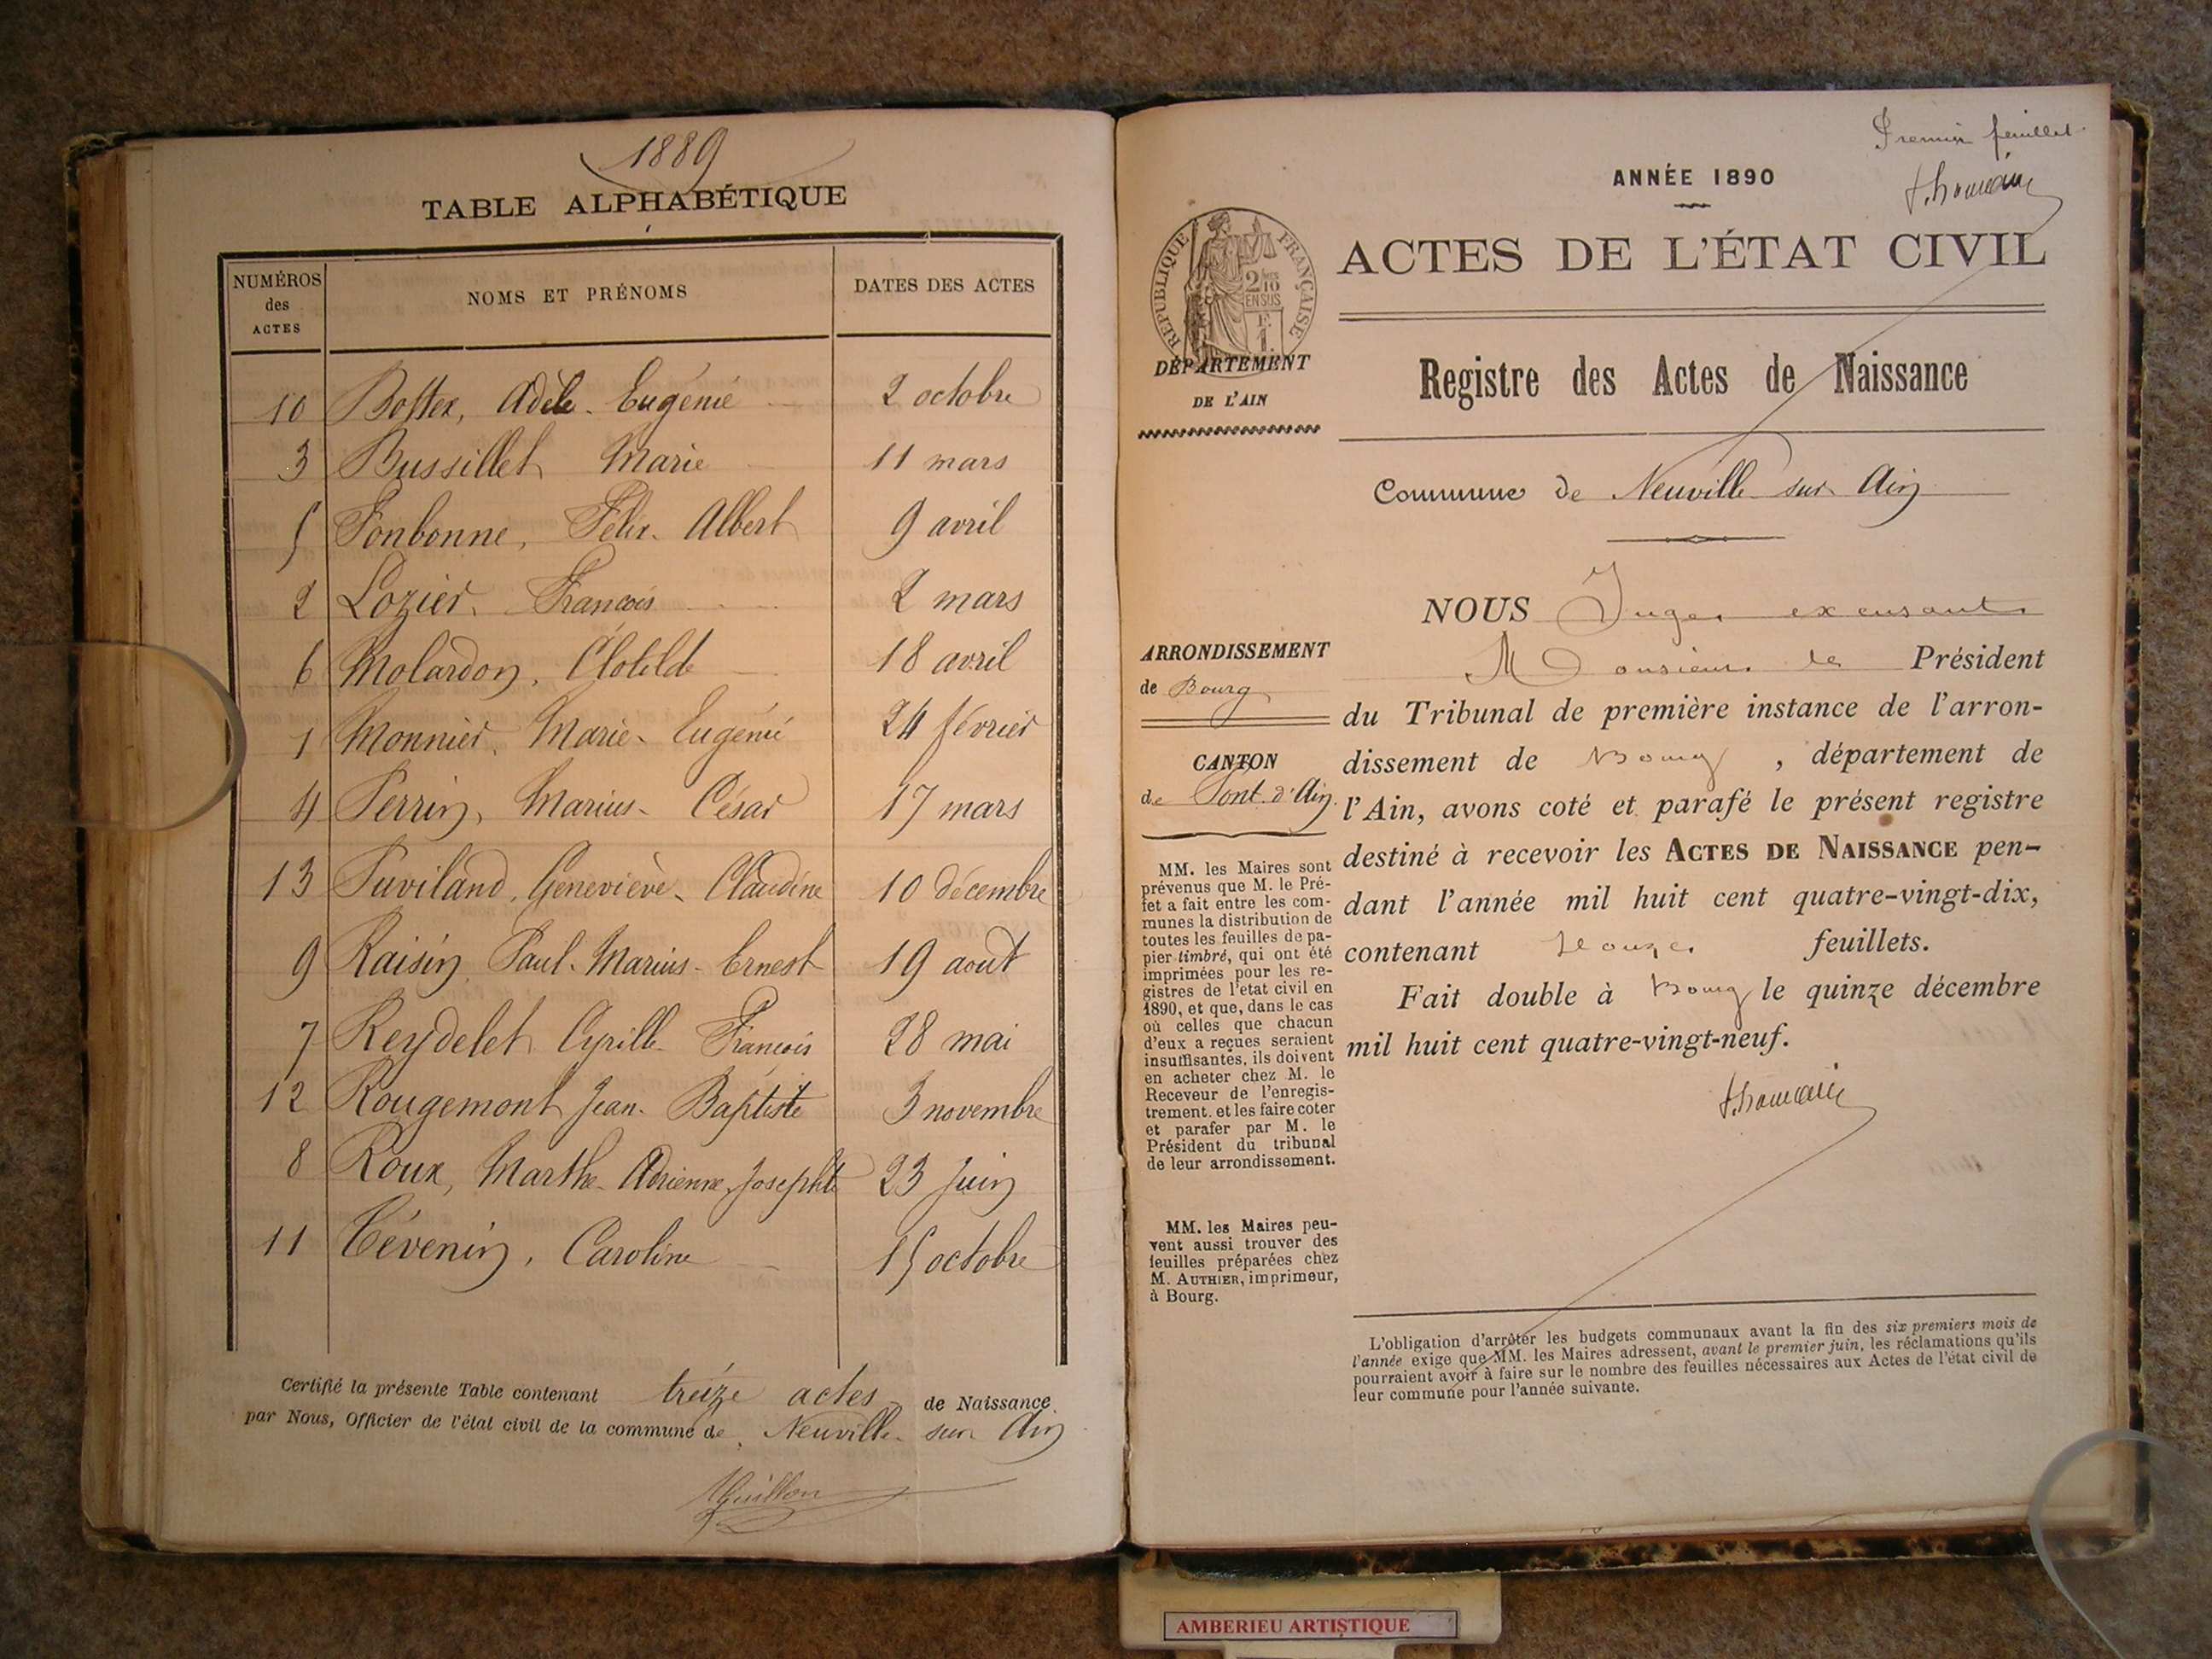 1889
TABLE ALPHABÉTIQUE
NUMÉROS des ACTES
NOMS ET PRÉNOMS
DATES DES ACTES
10 Bottex, Adèle Eugénie 2 octobre
3 Bussillet Marie 11 mars
5 Fonbonne, Félix Albert 9 avril
2 Lozier, François 2 mars
6 Molardon, Clotilde 18 avril
1 Monnier, Marie Eugénie 24 février
4 Perrin, Marius César 17 mars
13 Puviland, Geneviève Claudine 10 décembre
9 Raisin Paul Marius Ernest 19 août
7 Reydelet Cyrille François 28 mai
12 Rougemont Jean Baptiste 3 novembre
8 Roux, Marthe Adrienne Josephte 23 Juin
11 Tévenin, Caroline 15 octobre
Certifié la présente Table contenant treize actes de Naissance
par Nous, Officier de l'état civil de la commune de Neuville sur Ain
Premier feuillet
ANNÉE 1890
ACTES DE L'ÉTAT CIVIL
RÉPUBLIQUE FRANÇAISE
2/10
EN SUS
F.
1.
DÉPARTEMENT
DE L'AIN
Registre des Actes de Naissance
Commune de Neuville sur Ain
ARRONDISSEMENT
de Bourg
CANTON
de Pont d'Ain
MM. les Maires sont
prévenus que M. le Pré-
fet a fait entre les com-
munes la distribution de
toutes les feuilles de pa-
pier timbré, qui ont été
imprimées pour les re-
gistres de l'etat civil en
1890, et que, dans le cas
où celles que chacun
d'eux a reçues seraient
insuffisantes, ils doivent
en acheter chez M. le
Receveur de l'enregis-
trement, et les faire coter
et parafer par M. le
Président du tribunal
de leur arrondissement.
MM. les Maires peu-
vent aussi trouver des
feuilles préparées chez
M. AUTHIER, imprimeur,
à Bourg.
NOUS Juge excusant
Monsieur le Président
du Tribunal de première instance de l'arron-
dissement de Bourg, département de
l'Ain, avons coté et parafé le présent registre
destiné à recevoir les ACTES DE NAISSANCE pen-
dant l'année mil huit cent quatre-vingt-dix,
contenant feuillets.
Fait double à Bourg le quinze décembre
mil huit cent quatre-vingt-neuf.
L'obligation d'arrêter les budgets communaux avant la fin des six premiers mois de
l'année exige que MM. les Maires adressent, avant le premier juin, les réclamations qu'ils
pourraient avoir à faire sur le nombre des feuilles nécessaires aux Actes de l'état civil de
leur commune pour l'année suivante.
AMBERIEU ARTISTIQUE